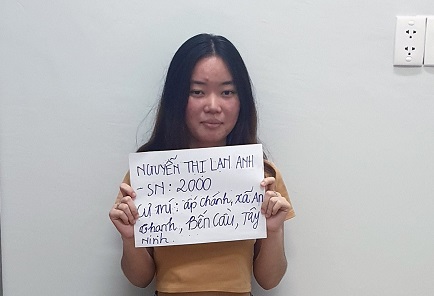 NGUYỄN THỊ LAN ANH
- SN: 2000
Cư trú: ấp Chánh, xã An
Thạnh, Bến Cầu, Tây
Ninh.